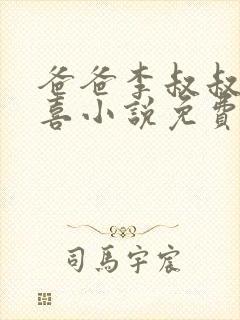 爸爸李叔叔
喜小說免費
司馬宇宸